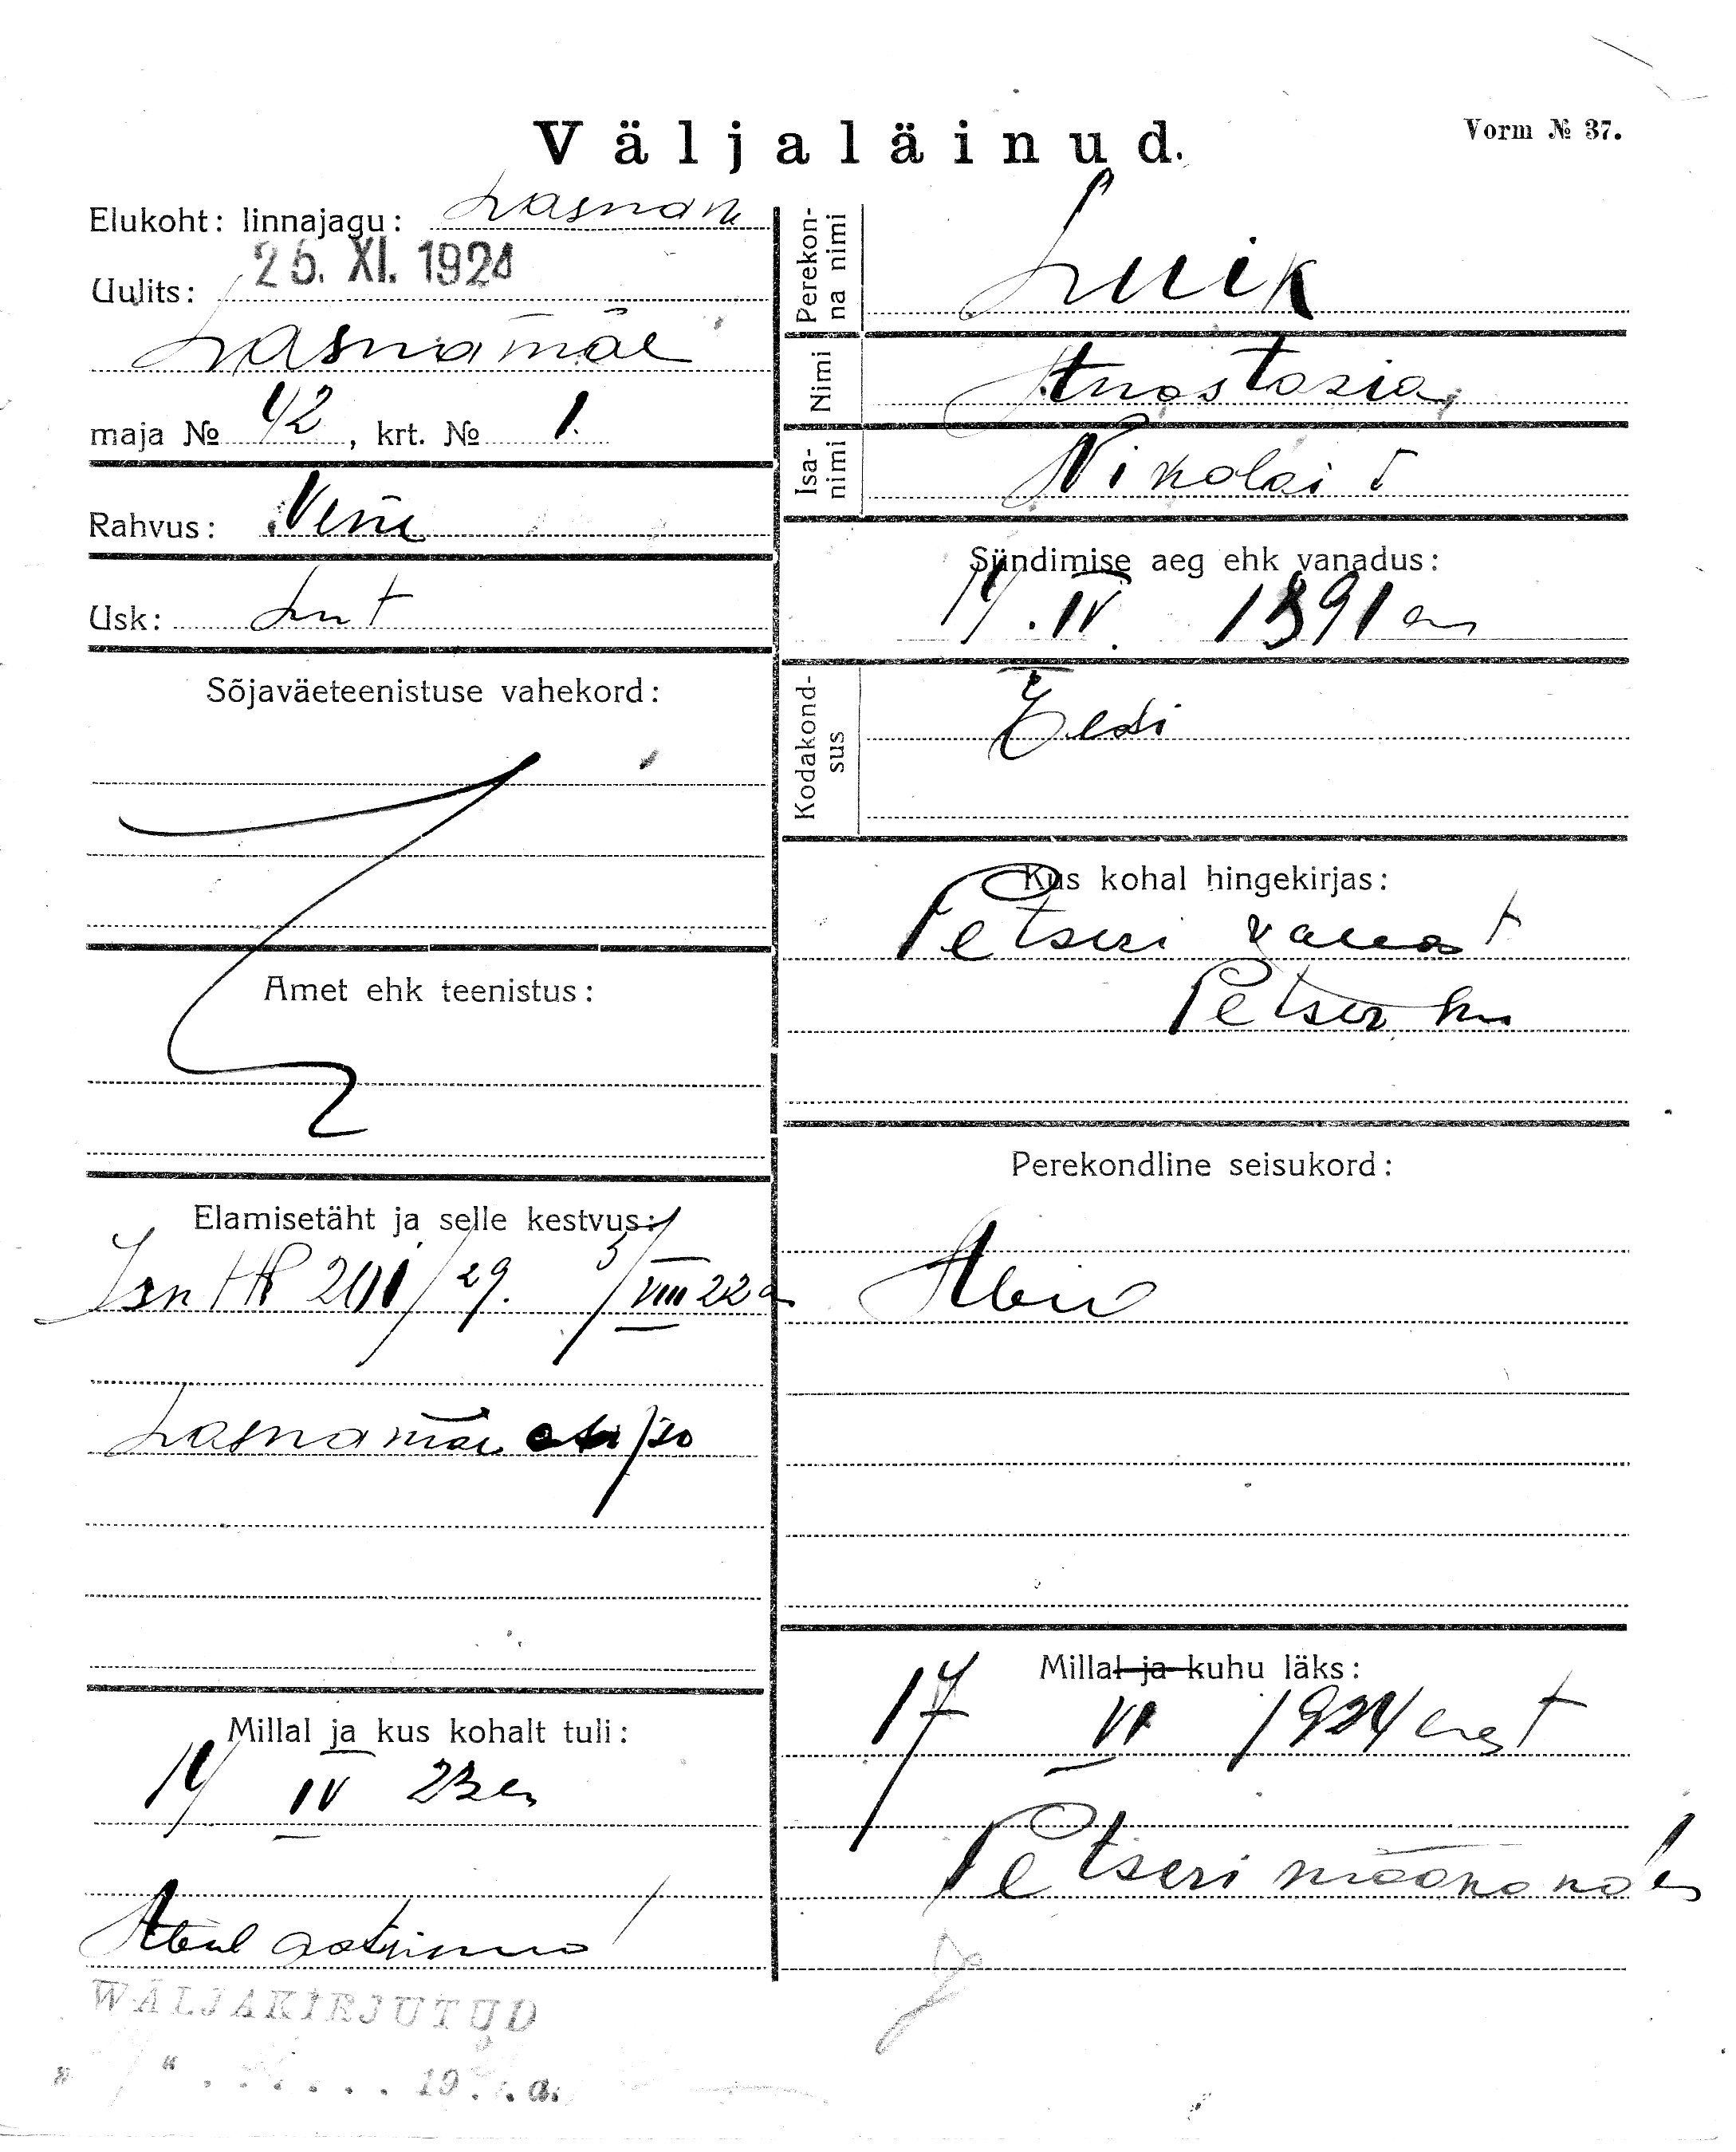 Väljaläinud.
Vorm № 37.
Elukoht: linnajagu: Lasnam
25. XI. 1924
Uulits:
Lasnamäe
maja № 42, krt. № 1.
Rahvus: Vene
Usk: Lut
Sõjaväeteenistuse vahekord:
Amet ehk teenistus:
Elamisetäht ja selle kestvus:
Isn № 201/29. 5/VIII 22 a
Lasnamäe
Millal ja kus kohalt tuli:
14 IV 23
WÄLJAKIRJUTUD
" " . . . . . . 19 . . a.
Perekonna nimi
Luik
Nimi
Anastasia
Isanimi
Nikolai t
Sündimise aeg ehk vanadus:
14. IV. 1891 a
Kodakondsus
Eesti
Kus kohal hingekirjas:
Petseri vallast
Petseri
Perekondline seisukord:
Abiel
Millal ja kuhu läks:
17 VI 1924
Petseri